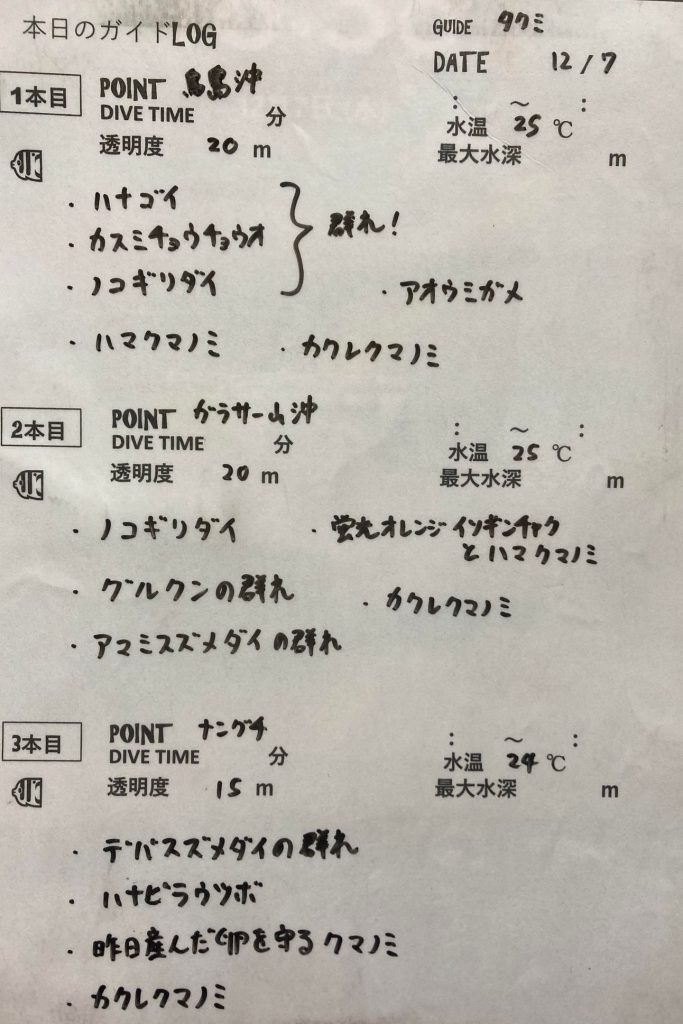 本日のガイドLOG
GUIDE タクミ
DATE 12/7
1本目
POINT 烏島沖
DIVE TIME 分
: ～ :
透明度 20 m
水温 25 ℃
最大水深 m
・ハナゴイ
・カスミチョウチョウオ
・ノコギリダイ
群れ!
・アオウミガメ
・ハマクマノミ ・カクレクマノミ
2本目
POINT ガラサー山沖
DIVE TIME 分
: ～ :
透明度 20 m
水温 25 ℃
最大水深 m
・ノコギリダイ ・蛍光オレンジイソギンチャク
とハマクマノミ
・グルクンの群れ ・カクレクマノミ
・アマミスズメダイの群れ
3本目
POINT ナングチ
DIVE TIME 分
: ～ :
透明度 15 m
水温 24 ℃
最大水深 m
・デバスズメダイの群れ
・ハナビラウツボ
・昨日産んだ卵を守るクマノミ
・カクレクマノミ